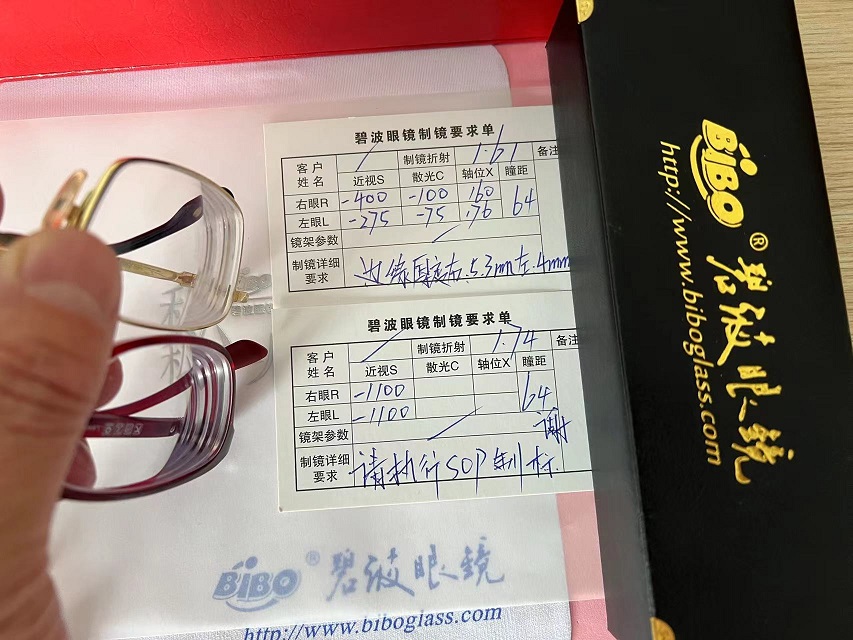 碧波眼镜制镜要求单
客户姓名 / 制镜折射 1.61 备注
近视S 散光C 轴位X 瞳距
右眼R -400 -100 160 64
左眼L -275 -75 176
镜架参数 /
制镜详细要求 边缘厚度右.5.3mm左.4mm
碧波眼镜制镜要求单
客户姓名 / 制镜折射 1.74 备注
近视S 散光C 轴位X 瞳距
右眼R -1100 64
左眼L -1100
镜架参数 / 谢
制镜详细要求 请执行SOP制标.
BiBO® 碧波眼镜
http://www.biboglass.com
BiBO ® 碧波眼镜
http://www.biboglass.com